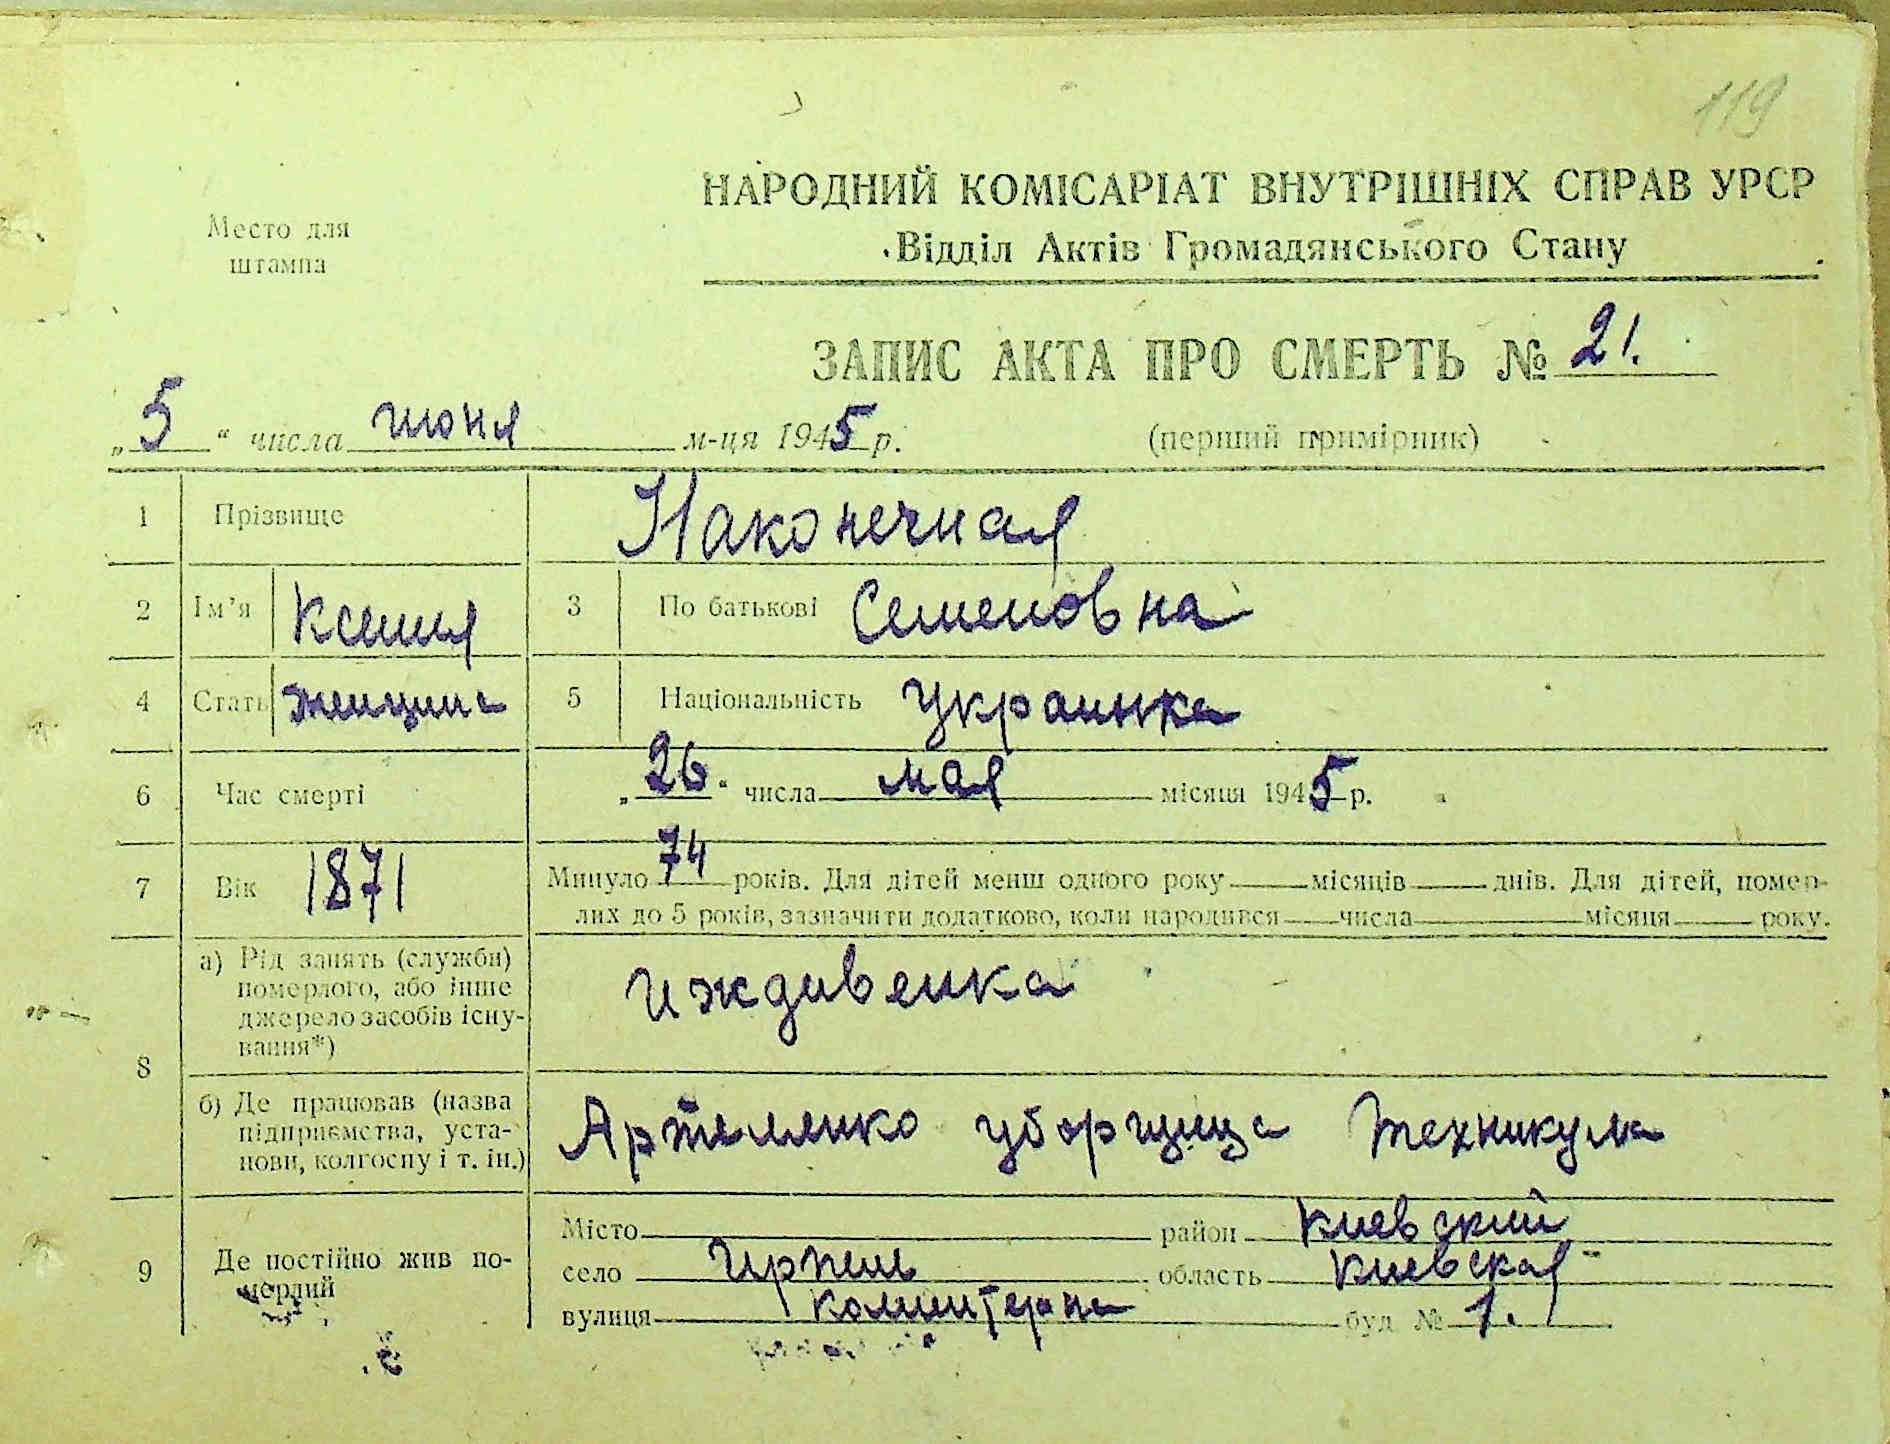 119
НАРОДНИЙ КОМІСАРІАТ ВНУТРІШНІХ СПРАВ УРСР
Место для
штампа
Відділ Актів Громадянського Стану
ЗАПИС АКТА ПРО СМЕРТЬ № 21.
„5“ числа июня м-ця 1945 р. (перший примірник)
1 Прізвище Наконечная
2 Ім’я Ксения 3 По батькові Семеновна
4 Стать женщина 5 Національність Украинка
6 Час смерті „26.“ числа мая місяця 1945 р.
7 Вік 1871 Минуло 74 років. Для дітей менш одного року місяців днів. Для дітей, помер-
лих до 5 років, зазначити додатково, коли народився числа місяця року.
8 а) Рід занять (служби)
померлого, або інше
джерело засобів існу-
вання*)
иждивенка
б) Де працював (назва
підприємства, уста-
нови, колгоспу і т. ін.)
Артеменко уборщица техникума
9 Де постійно жив по-
мерлий
Місто район Киевский
село Ирпень область Киевская
вулиця коминтерна буд № 1.